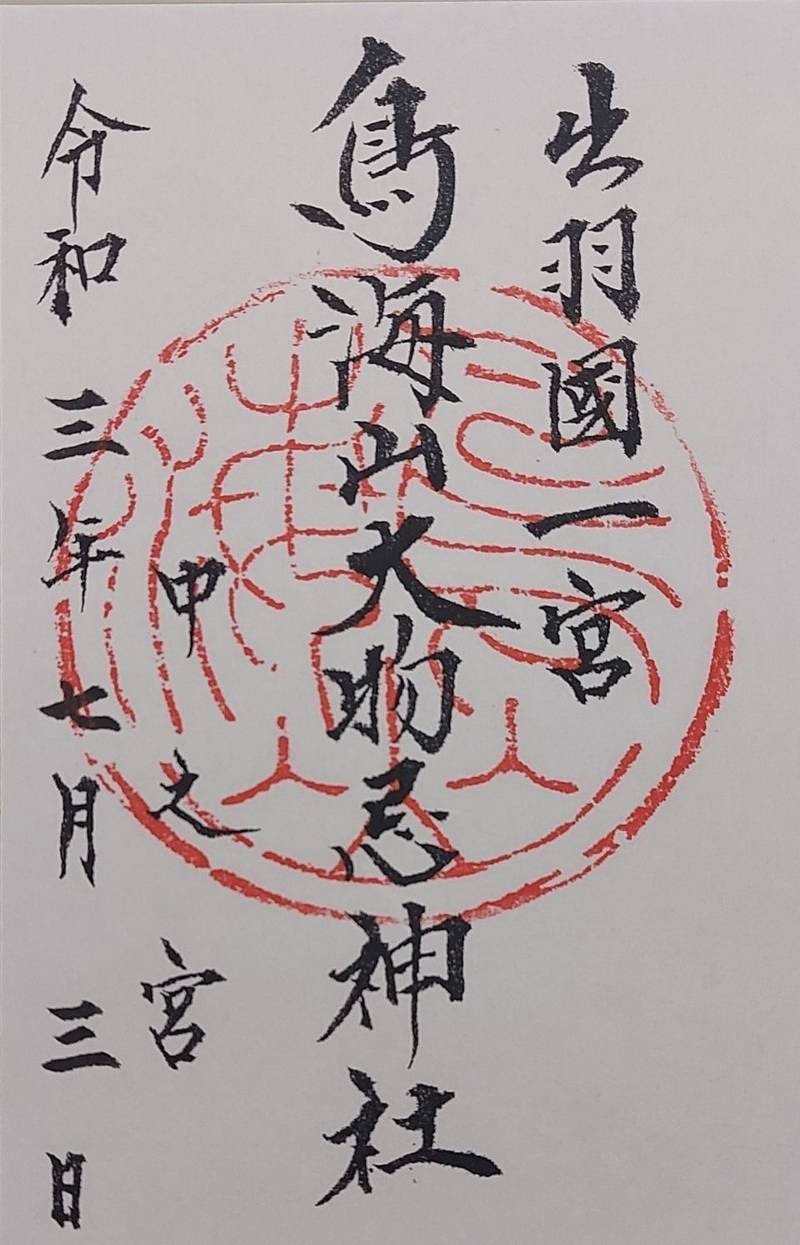 出羽國一宮
鳥海山大物忌神社
中之宮
令和三年七月三日